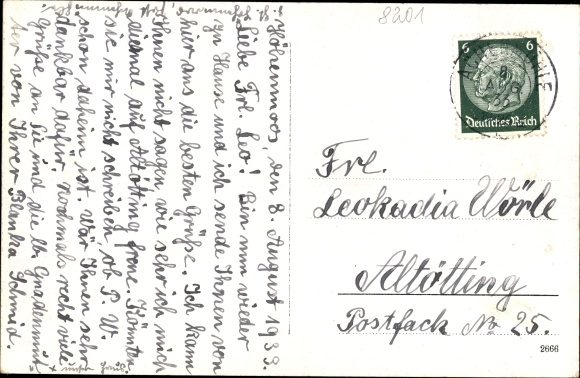 8201
Hölzenmoos, den 8. August 1933.
Liebe Frl. Leo! Bin nun wieder
zu Hause und ich sende Ihnen von
hier aus die besten Grüße. Ich kann
Ihnen nicht sagen wie sehr ich mich
diemal auf Altötting freue. Könnten
sie mir nicht schreiben, ob P. W.
schon daheim ist. Wär Ihnen sehr
dankbar dafür. Nochmals recht viele
Grüße an Sie und die lb. Gnadenmutter
von Ihrer Blanka Schmid.
6 6
Deutsches Reich
Frl.
Leokadia Wörle
Altötting
Postfach No 25.
2666